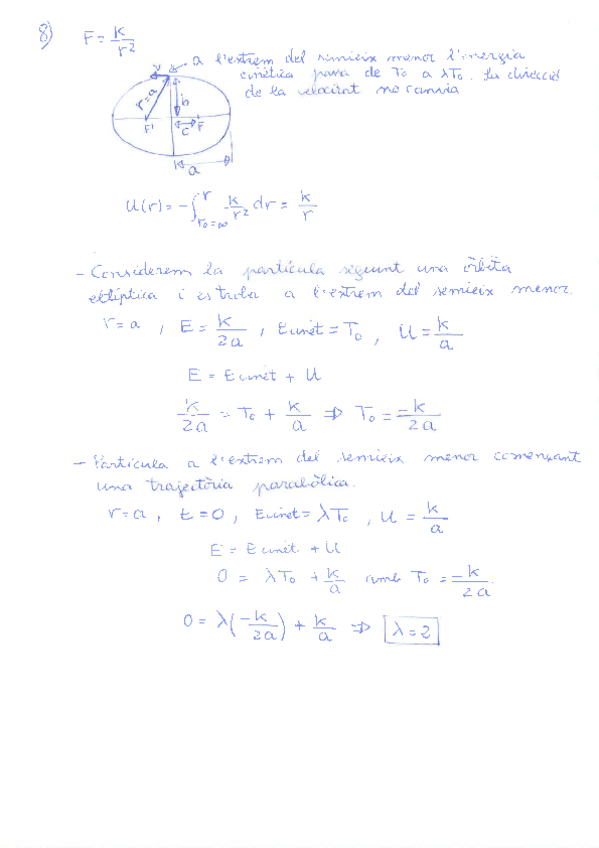 8) F = k/r²
a l'extrem del semieix menor l'energia
cinètica passa de T₀ a λT₀. La direcció
de la velocitat no canvia
v
r=a
b
F' c F
a
U(r) = -∫_{r₀=∞}^{r} k/r² dr = k/r
- Considerem la partícula seguint una òrbita
el·líptica i estroba a l'extrem del semieix menor.
r=a, E = k/2a, Ecinèt = T₀, U = k/a
E = Ecinèt + U
k/2a = T₀ + k/a ⇒ T₀ = -k/2a
- Partícula a l'extrem del semieix menor començant
una trajectòria parabòlica.
r=a, E=0, Ecinèt = λT₀, U = k/a
E = Ecinèt + U
0 = λT₀ + k/a amb T₀ = -k/2a.
0 = λ(-k/2a) + k/a ⇒ λ=2